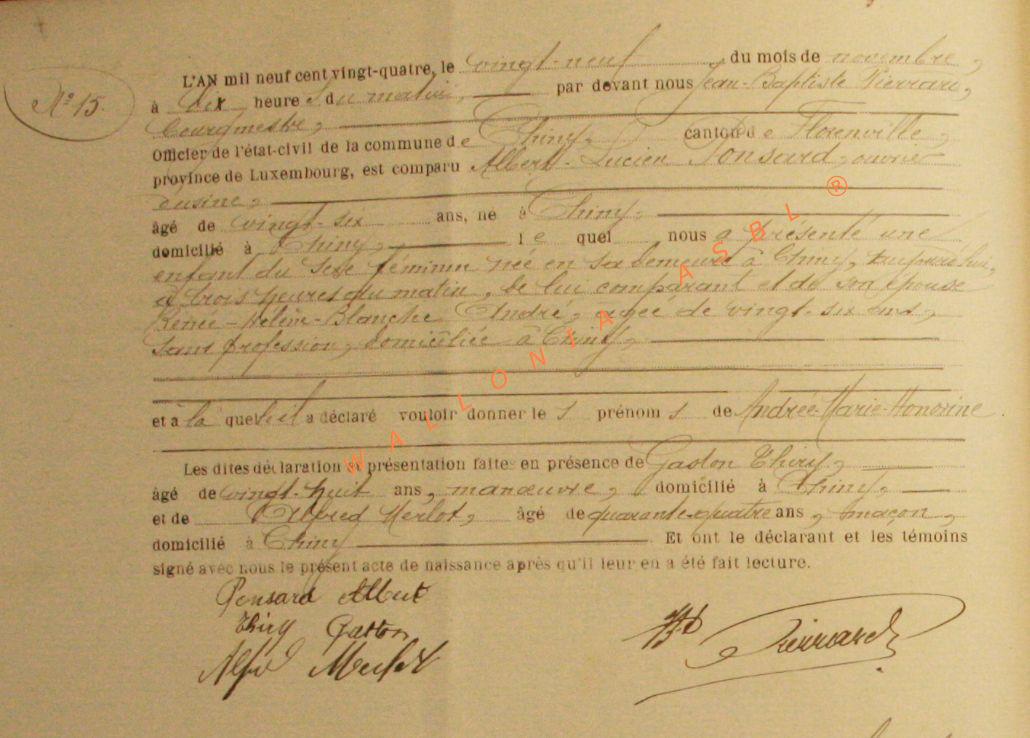 N° 15.
L'AN mil neuf cent vingt-quatre, le vingt-neuf du mois de novembre,
à dix heures du matin, par devant nous Jean-Baptiste Pierrard,
bourgmestre,
Officier de l'état-civil de la commune de Chiny, canton de Florenville,
province de Luxembourg, est comparu Albert-Lucien Ponsard, ouvrier
d'usine,
âgé de vingt-six ans, né à Chiny,
domicilié à Chiny, lequel nous a présenté une
enfant du sexe féminin née en sa demeure à Chiny, aujourd'hui,
à trois heures du matin, de lui comparant et de son épouse
Renée-Hélène-Blanche André, âgée de vingt-six ans,
sans profession, domiciliée à Chiny,
et à laquelle il a déclaré vouloir donner les prénoms de Andrée-Marie-Honorine
Les dites déclaration & présentation faites en présence de Gaston Thiry,
âgé de vingt-huit ans, manœuvre, domicilié à Chiny,
et de Alfred Merlot, âgé de quarante-quatre ans, maçon,
domicilié à Chiny. Et ont le déclarant et les témoins
signé avec nous le présent acte de naissance après qu'il leur en a été fait lecture.
Ponsard Albert
Thiry Gaston
Alfred Merlot
JB Pierrard
WALLONIA ASBL ®